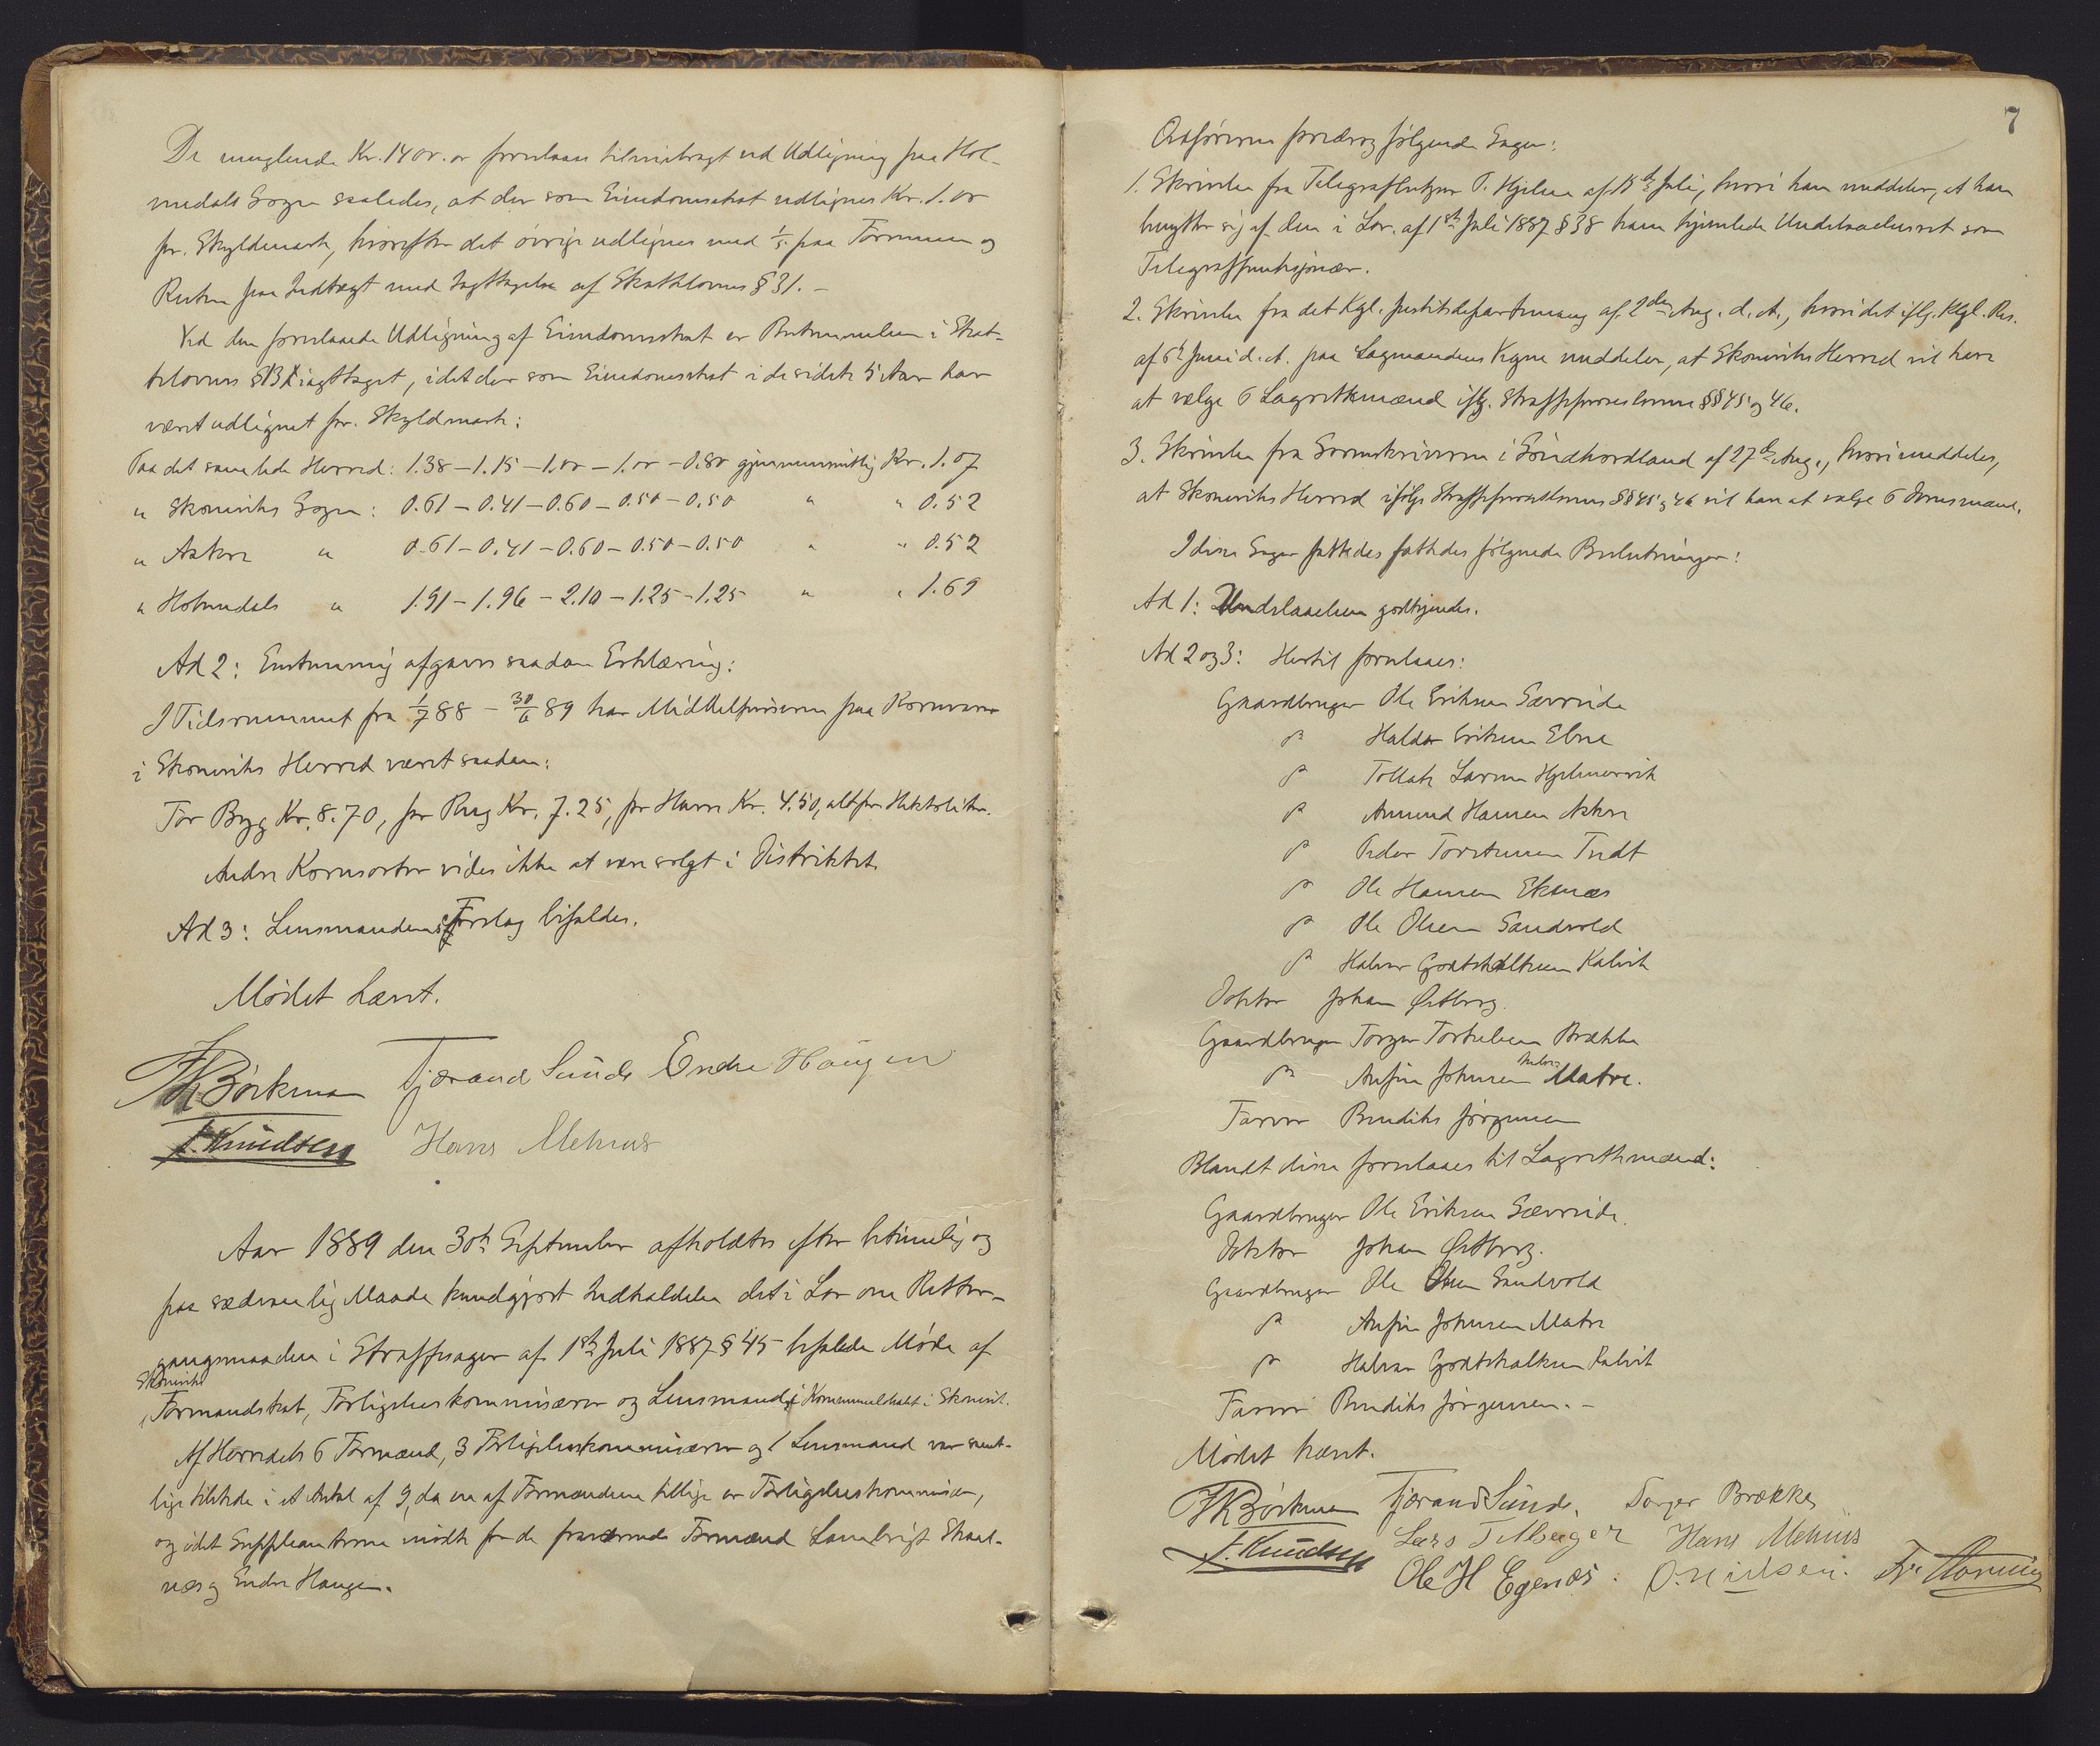 De manglende Kr. 1400.00 foreslaaes tilveiebragt ved Udligning paa Hol-
medals Sogn saaledes, at der som Eiendomsskat udlignes Kr. 1.00
pr. Skyldmark, hvorefter det øvrige udlignes med 1/5 paa Formue og
Resten paa Indtægt med Iagttagelse af Skattelovens § 31. –
Ved den foreslaaede Udligning af Eiendomsskat er Bestemmelsen i Skat-
telovens § iagttaget, idet der som Eiendomsskat i de sidste 5 Aar har
været udlignet pr. Skyldmark:
Paa det samlede Herred: 1.38 – 1.15 – 1.00 – 1.00 – 0.80 gjennemsnitlig Kr. 1.07
" Skoneviks Sogn: 0.61 – 0.41 – 0.60 – 0.50 – 0.50 " " 0.52
" Aakre " 0.61 – 0.41 – 0.60 – 0.50 – 0.50 " " 0.52
" Holmedals " 1.91 – 1.96 – 2.10 – 1.25 – 1.25 " " 1.69
Ad 2: Enstemmig afgaves saadan Erklæring:
I Tidsrummet fra 1/7 88 – 30/6 89 har Middelpriserne paa Kornvarer
i Skoneviks Herred været saadan:
For Byg Kr. 8.70, for Rug Kr. 7.25, for Havre Kr. 4.50, alt pr. Hektoliter.
Andre Kornsorter vides ikke at være solgt i Distriktet.
Ad 3: Lensmandens Forslag bifaldes.
Mødet hævet.
Børkman Tjærand Sunde Endre Haugen
J. Knudsen Hans Mehus
Aar 1889 den 30te September afholdtes efter betimelig og
paa sædvanlig Maade kundgjort Indkaldelse det i Lov om Retter-
gangsmaaden i Straffesager af 1ste Juli 1887 § 45 befalede Møde af
Skoneviks
Formandskab, Forligelseskommissærer og Lensmand i Kommunelokalet i Skonevik.
Af Herredets 6 Formænd, 3 Forligelseskommissærer og 1 Lensmand var samt-
lige tilstede i et Antal af 9, da en af Formændene tillige er Forligelseskommissær,
og idet Suppleanterne mødte for de fraværende Formænd Lambrigt Skaal-
næs og Endre Haugen.
7
Ordføreren foredrog følgende Sager:
1. Skrivelse fra Telegrafbestyrer T. Hjelm af 15de Juli, hvori han meddeler, at han
benytter sig af den i Lov af 1ste Juli 1887 § 38 ham hjemlede Undslaaelsesret som
Telegraffunktionær.
2. Skrivelse fra det Kgl. Justitsdepartement af 2den Aug. d. A., hvori det iflg. Kgl. Res.
af 6te Juni d. A. paa Lagmandens Vegne meddeler, at Skoneviks Herred vil have
at vælge 6 Lagrettemænd iflg. Straffeproceslovens §§ 45 og 46.
3. Skrivelse fra Sorenskriveren i Søndhordland af 27de Aug., hvori meddeles,
at Skoneviks Herred ifølge Straffeproceslovens §§ 45 og 46 vil have at vælge 6 Domsmænd.
I disse Sager fattedes fattedes følgende Beslutninger:
Ad 1: Undslaaelsen godkjendes.
Ad 2 og 3: Hertil foreslaaes:
Gaardbruger Ole Eriksen Sævreide
" Haldor Eriksen Ebne
" Tollak Larsen Hjelmervik
" Amund Hansen Aakre
" Peder Torstensen Tvedt
" Ole Hansen Ekenæs
" Ole Olsen Sandvold
" Halvor Godtskalksen Kalvik
Doktor Johan Østberg.
Gaardbruger Torger Torkelsen Brække
" Anfin Johnsen Matre.
Farver Bendiks Jørgensen
Blandt disse foreslaaes til Lagrettemænd:
Gaardbruger Ole Eriksen Sævreide.
Doktor Johan Østberg.
Gaardbruger Ole Olsen Sandvold
" Anfin Johnsen Matre
" Halvor Godtskalksen Kalvik
Farver Bendiks Jørgensen. –
Mødet hævet.
Børkman Tjærand Sunde. Torger Brække
J. Knudsen Lars Hans Mehus
Ole H Egenæs. O. Nilsen.